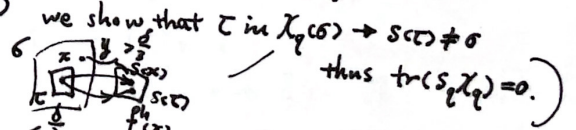 we show that τ in χ_q(σ) → s(τ) ≠ σ
thus tr(s_q χ_q) = 0.)
σ x y > δ/2
s(x)
τ s(τ)
δ/2